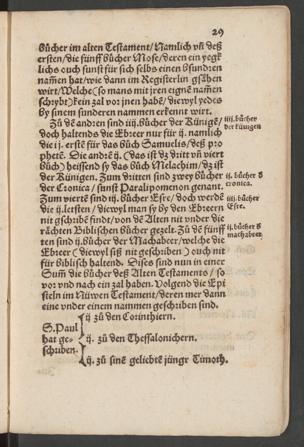 29
bücher im alten Testament/ Nämlich vn̄ deß
ersten/ die fünff bücher Mose/ deren ein yegk
lichs ouch sunst für sich selbs einen bsundren
nam̄en hat/ wie dann im Registerlin gsåhen
wirt/ Welche (so mans mit jren eignē namēn
schrybt) kein zal vor jnen habē/ diewyl yedes
by sinem sunderen nammen erkennt wirt.
Zů dē andren sind iiij. bůcher der Künigē/
doch haltends die Ebreer nur für ij. namlich
die ij. erstē für das bůch Samuelis/ deß pro
phetē. Die andrē ij. (das ist dz dritt vn̄ viert
bůch) heissend sy das bůch Melachim/ dz ist
der Künigen. Zum dritten sind zwey bücher
der Cronica/ sunst Paralipomenon genant.
Zum vierte sind iij. bücher Esre/ doch werdē
die ij. letsten/ diewyl man sy by den Ebreern
nit gschribē findt/ von dē Alten nit vnder die
råchten Biblischen bücher gezelt. Zů dē fünff
ten sind ij. bücher der Machabeer/ welche die
Ebreer (diewyl sÿß nit geschriben) ouch nit
für biblisch haltend. Disco sind nun in einer
Sum̄ die bücher deß Alten Testaments/ so
vor vnd nach ein zal haben. Volgend die Epi
steln im Nüwen Testament/ deren mer dann
eine vnder einem nammen geschriben sind.
iiij. bücher
der künigen
ij. bücher d
cronica.
iiij. bücher
Esre.
ij. bücher d
machabeer
S. Paul
hat ge-
schriben.
ij zů den Corinthiern.
ij. zů den Thessalonichern.
ij. zů sinē geliebtē jüngr Timoth.